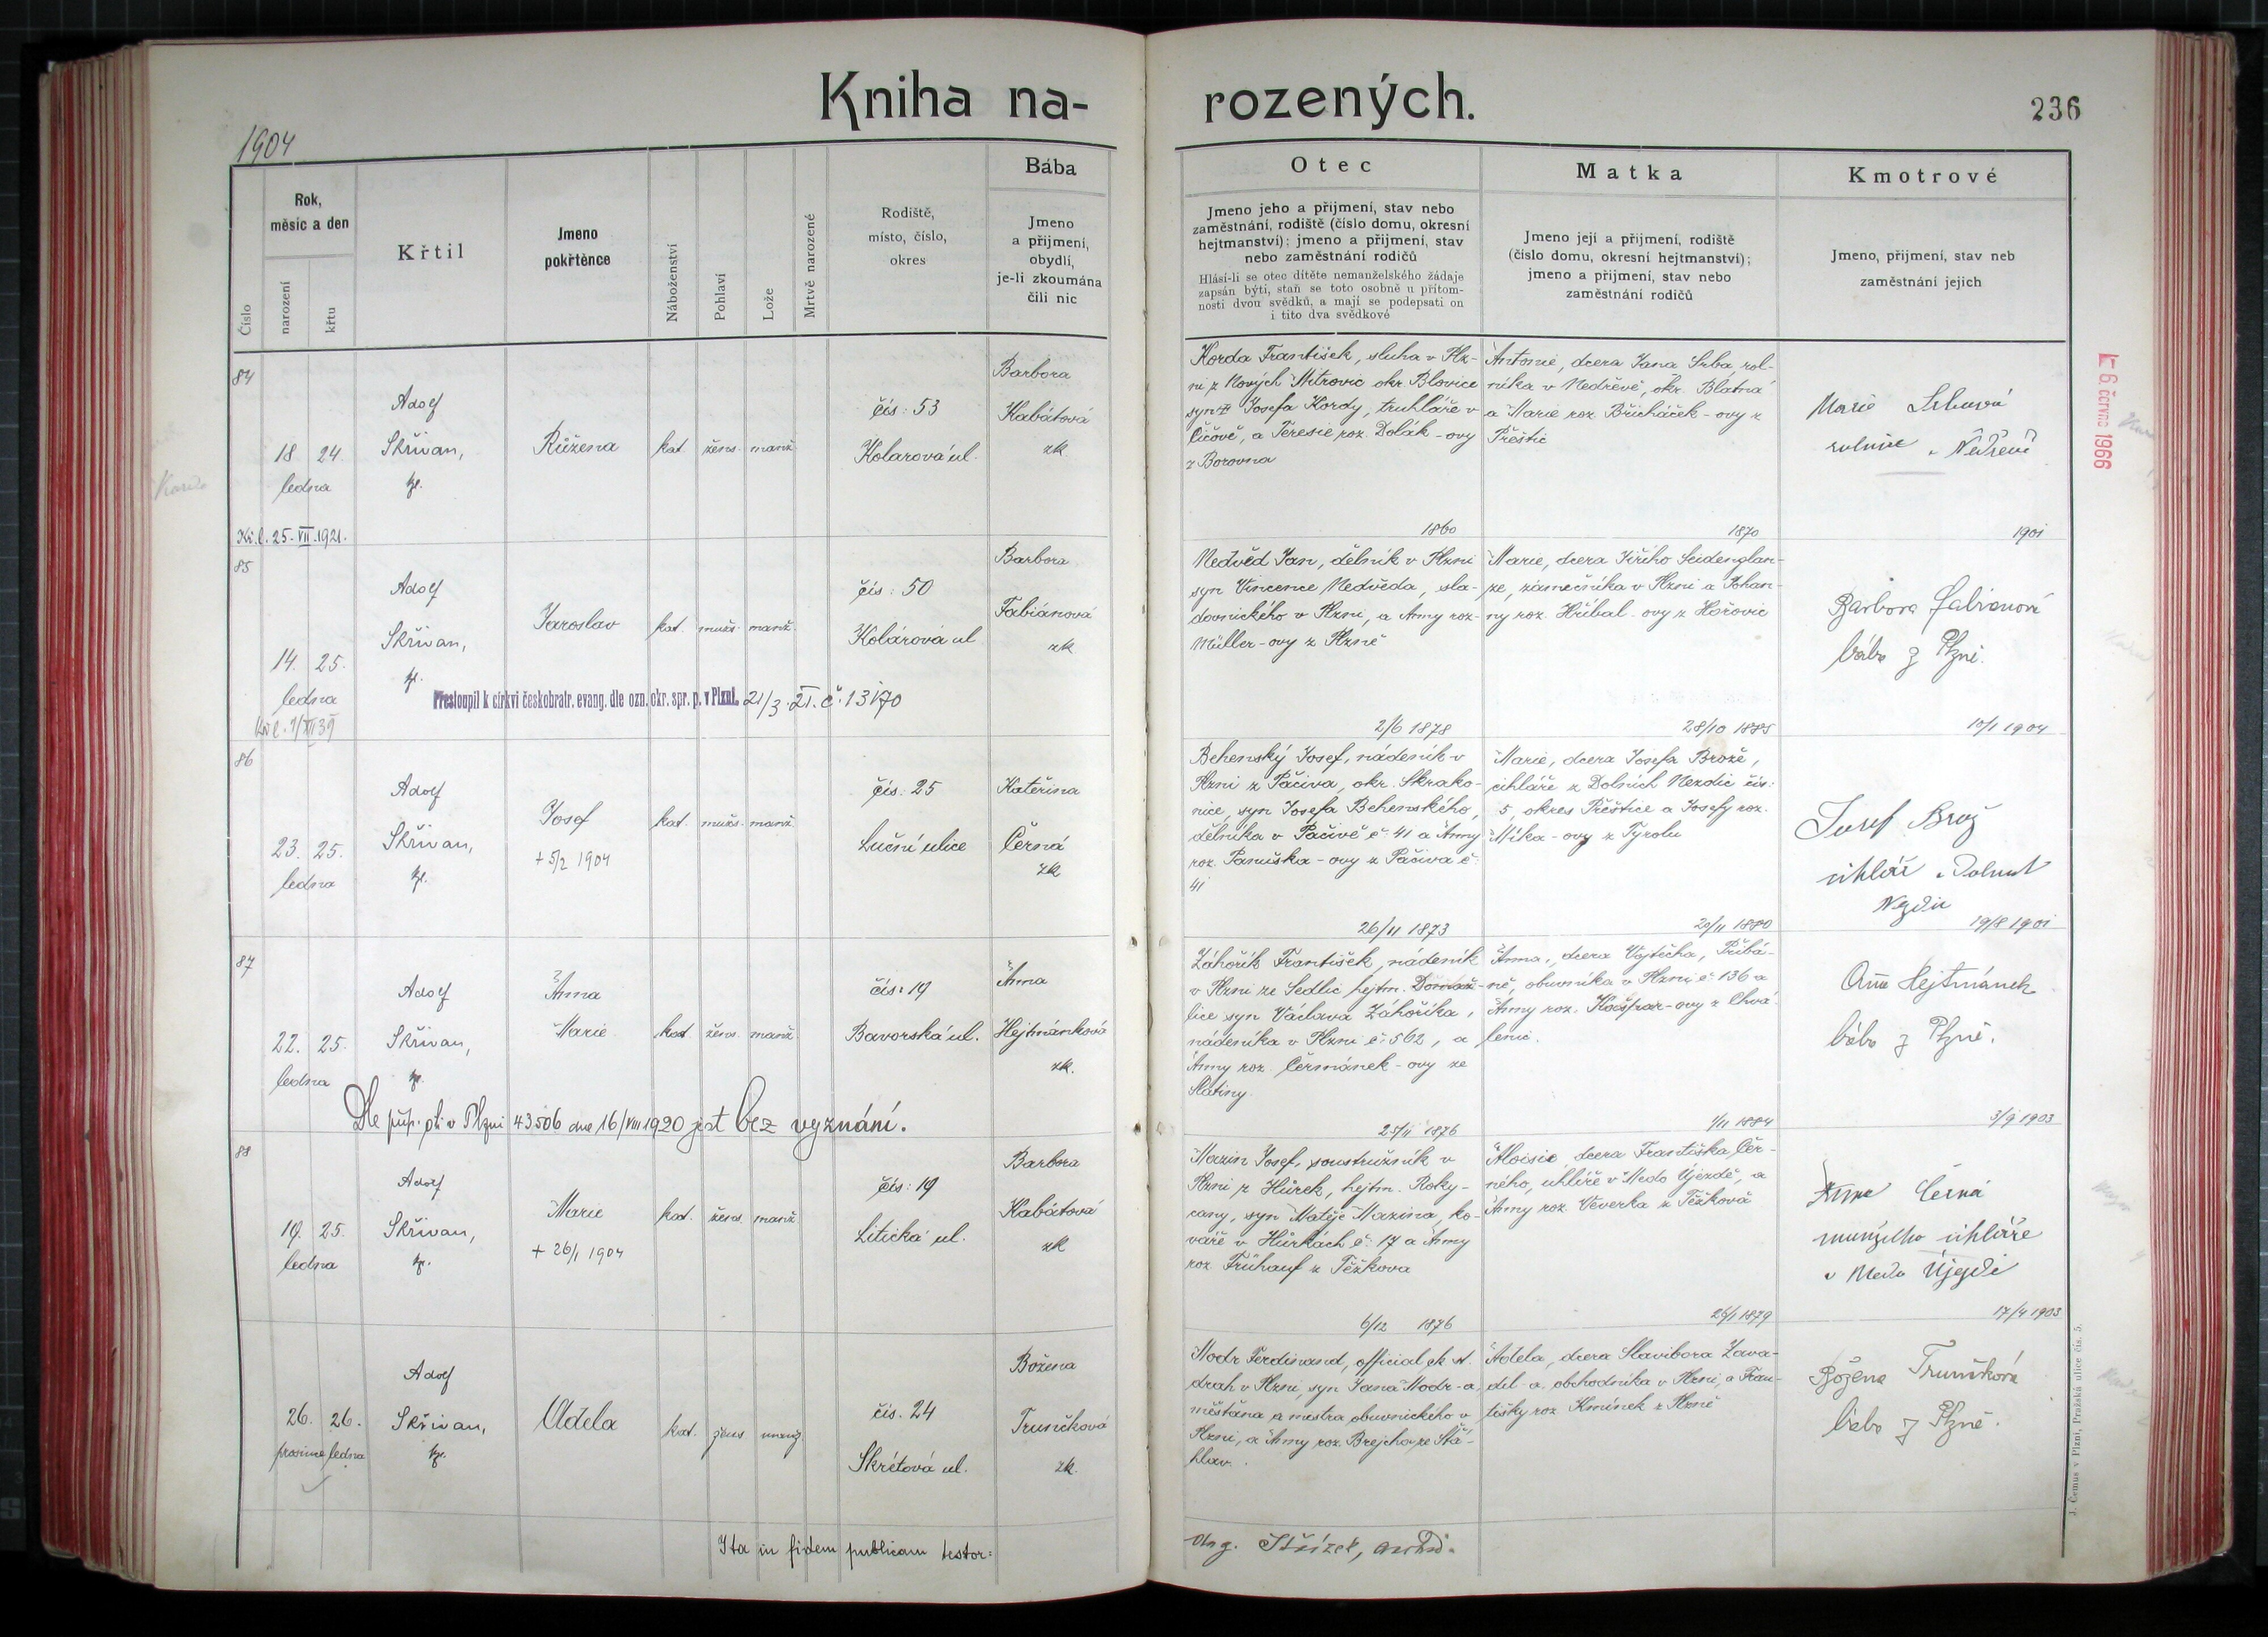 Kniha na-
rozených.
236
1904
Číslo
Rok,
měsíc a den
narození
křtu
Křtil
Jmeno
pokřtěnce
Náboženství
Pohlaví
Lože
Mrtvě narozené
Rodiště,
místo, číslo,
okres
Bába
Jmeno
a příjmení,
obydlí,
je-li zkoumána
čili nic
Otec
Jmeno jeho a příjmení, stav nebo
zaměstnání, rodiště (číslo domu, okresní
hejtmanství); jmeno a příjmení, stav
nebo zaměstnání rodičů
Hlásí-li se otec dítěte nemanželského žádaje
zapsán býti, staň se toto osobně u přítom-
nosti dvou svědků, a mají se podepsati on
i tito dva svědkové
Matka
Jmeno její a příjmení, rodiště
(číslo domu, okresní hejtmanství);
jmeno a příjmení, stav nebo
zaměstnání rodičů
Kmotrové
Jmeno, příjmení, stav neb
zaměstnání jejich
84
18 24
ledna
Adolf
Skřivan,
Růžena
kat. žens. manž.
čís: 53
Kolarova ul.
Barbora
Kabátová
zk.
Korda František, sluha v Plz-
ni z Nových Mitrovic okr. Blovice
syn Josefa Kordy, truhláře v
Číčově, a Teresie roz. Dolák-ovy
z Borovna
Antonie, dcera Jana Srba, rol-
níka v Nedřevě, okr. Blatná
a Marie roz. Břicháček-ovy z
Přeštic
Marie Srbová
1860
1870
1901
25. VII. 1921.
85
14. 25.
ledna
Adolf
Skřivan,
Jaroslav
kat. mužs. manž.
čís: 50
Kolárova ul
Barbora
Fabiánová
zk
Přestoupil k církvi českobratr. evang. dle ozn. okr. spr. p. v Plzni. 21/3. 21. č. 13170
Nedvěd Jan, dělník v Plzni
syn Vincence Nedvěda, sla-
dovnického v Plzni, a Anny roz.
Müller-ovy z Plzně
Marie, dcera Jiřího Seidenglan-
ze, zámečníka v Plzni a Johan-
ny roz. Hříbal-ovy z Hořovic
Barbora Fabianová
bába z Plzně.
2/6 1878
28/10 1885
10/1 1904
86
23. 25.
ledna
Adolf
Skřivan,
Josef
+ 5/2 1904
kat. mužs. manž.
čís: 25
Luční ulice
Kateřina
Černá
zk
Behenský Josef, nádeník v
Plzni z Pačiva, okr. Skrako-
nice, syn Josefa Behenského,
dělníka v Pačivě č. 41 a Anny
roz. Panuška-ovy z Pačiva č.
41
Marie, dcera Josefa Brože,
cihláře z Dolních Nezdic čís:
5, okres Přeštice a Josefy roz.
Míka-ovy z Tyrolu
Josef Brož
cihlář
26/11 1873
20/11 1880
19/8 1901
87
22. 25.
ledna
Adolf
Skřivan,
Anna
Marie
kat žens. manž.
čís: 19
Bavorská ul.
Anna
Hejtmánková
zk.
Dle příp. v Plzni 43506 dne 16/VIII 1920 jest bez vyznání.
Záhořík František, nádeník
v Plzni ze Sedlic hejtm. Domaž-
lice syn Václava Záhoříka,
nádeníka v Plzni č: 562, a
Anny roz. Čermánek-ovy ze
Slatiny.
Anna, dcera Vojtěcha, Přibá-
ně, obuvníka v Plzni č. 136 a
Anny roz. Kašpar-ovy z Chvá-
lenic.
Anna Hejtmánek
bába z Plzně.
25/11 1876
1/11 1884
3/9 1903
88
19. 25.
ledna
Adolf
Skřivan,
Marie
+ 26/1 1904
kat. žens. manž.
čís: 19
Litická ul.
Barbora
Kabátová
zk
Mazin Josef, soustružník v
Plzni z Hůrek, hejtm. Roky-
cany, syn Matěje Mazina, ko-
váře v Hůrkách č: 17 a Anny
roz. Frühauf z Těžkova
Aloisie dcera Františka Čer-
ného, uhlíře v Medo Újezdě, a
Anny roz. Veverka z Těžkova
Anna Černá
manželka cihláře
v Medo Újezdě
6/12 1876
26/1 1879
17/4 1903
26. 26.
prosince ledna
Adolf
Skřivan,
Adéla
kat. žens manž.
čís. 24
Skrétova ul.
Božena
Trunčková
zk.
Modr Ferdinand, official ck st.
drah v Plzni, syn Jana Modr-a,
měšťana a mistra obuvnického v
Plzni, a Anny roz. Brejcha, ze Stá-
hlav.
Adela, dcera Slavibora Zava-
dil-a obchodníka v Plzni, a Fran-
tišky roz. Kminek z Plzně
Božena Trunčková
bába z Plzně.
Ita in fidem publicam testor:
6. června 1966
J. Čemus v Plzni, Pražská ulice čís. 5.